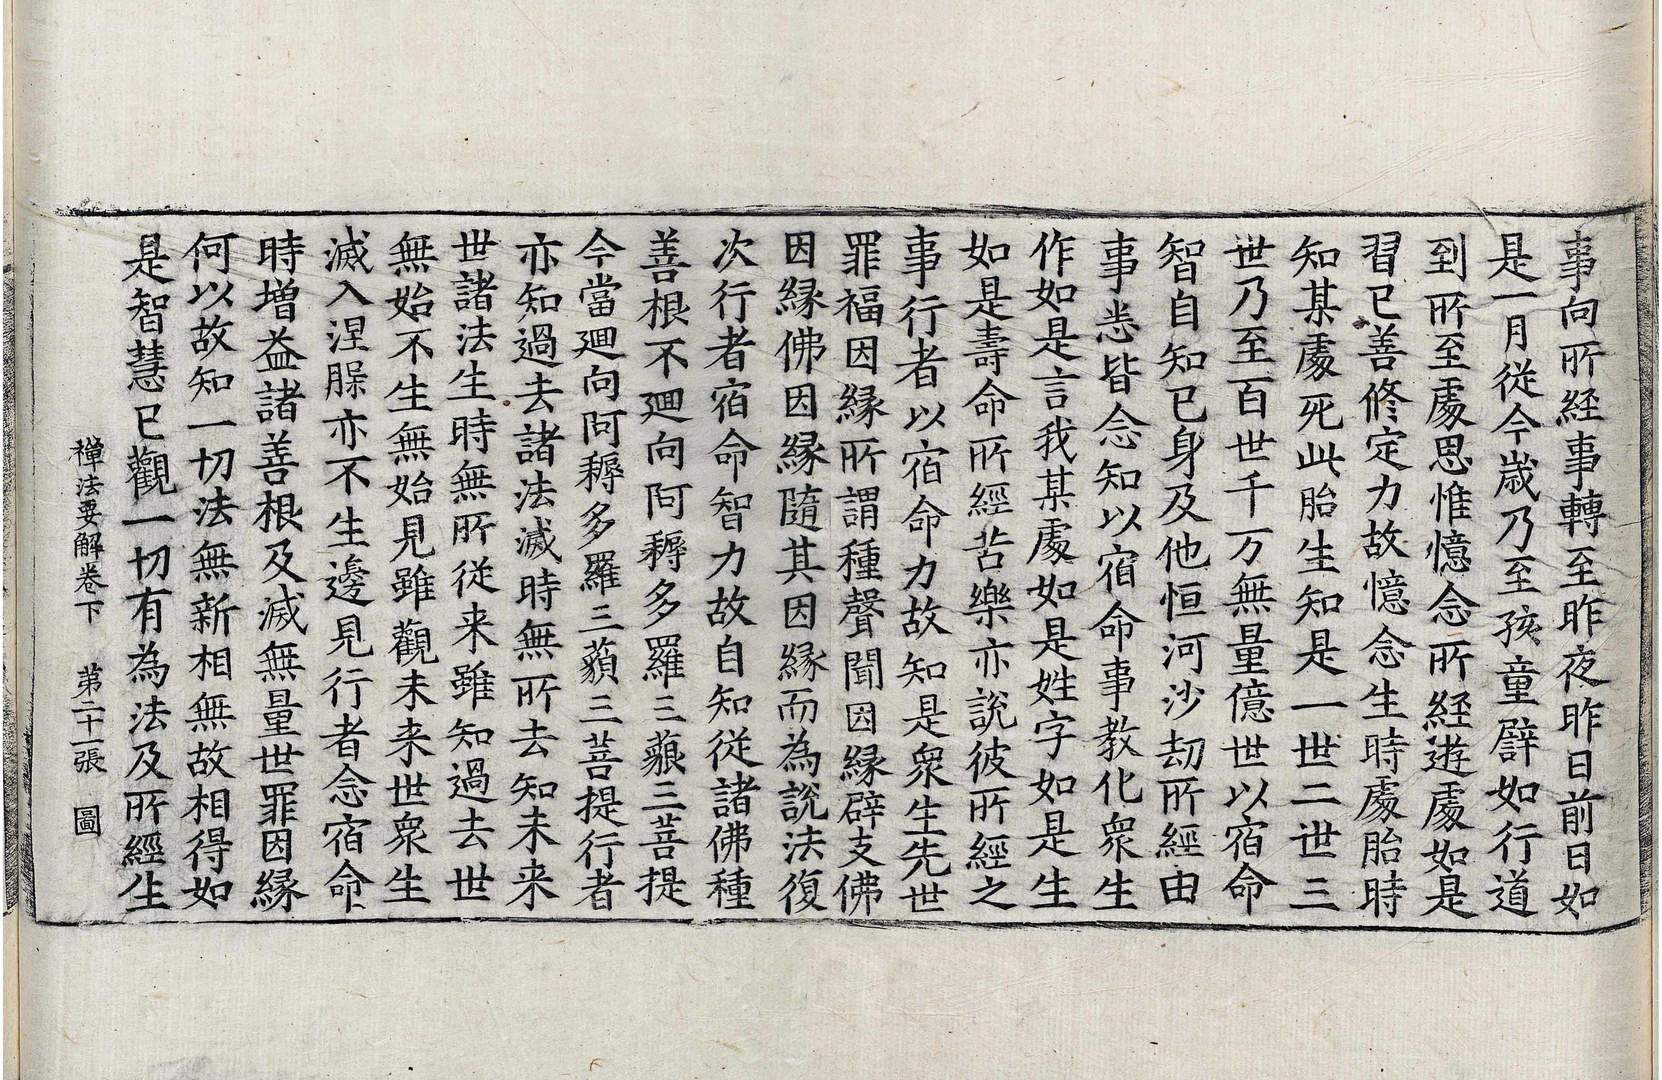 事向所経事轉至昨夜昨日前日如
是一月從今歲乃至孩童譬如行道
到所至處思惟憶念所経遊處如是
習已善修定力故憶念生時處胎時
知某處死此胎生知是一世二世三
世乃至百世千万無量億世以宿命
智自知已身及他恒河沙劫所經由
事悉皆念知以宿命事教化衆生
作如是言我某處如是姓字如是生
如是壽命所經苦樂亦說彼所經之
事行者以宿命力故知是衆生先世
罪福因緣所謂種聲聞因緣辟支佛
因緣佛因緣隨其因緣而為說法復
次行者宿命智力故自知從諸佛種
善根不廻向阿耨多羅三藐三菩提
今當廻向阿耨多羅三藐三菩提行者
亦知過去諸法滅時無所去知未来
世諸法生時無所從来雖知過去世
無始不生無始見雖觀未来世衆生
滅入涅槃亦不生邊見行者念宿命
時增益諸善根及滅無量世罪因緣
何以故知一切法無新相無故相得如
是智慧已觀一切有為法及所經生
禪法要解卷下　第二十一張　圖